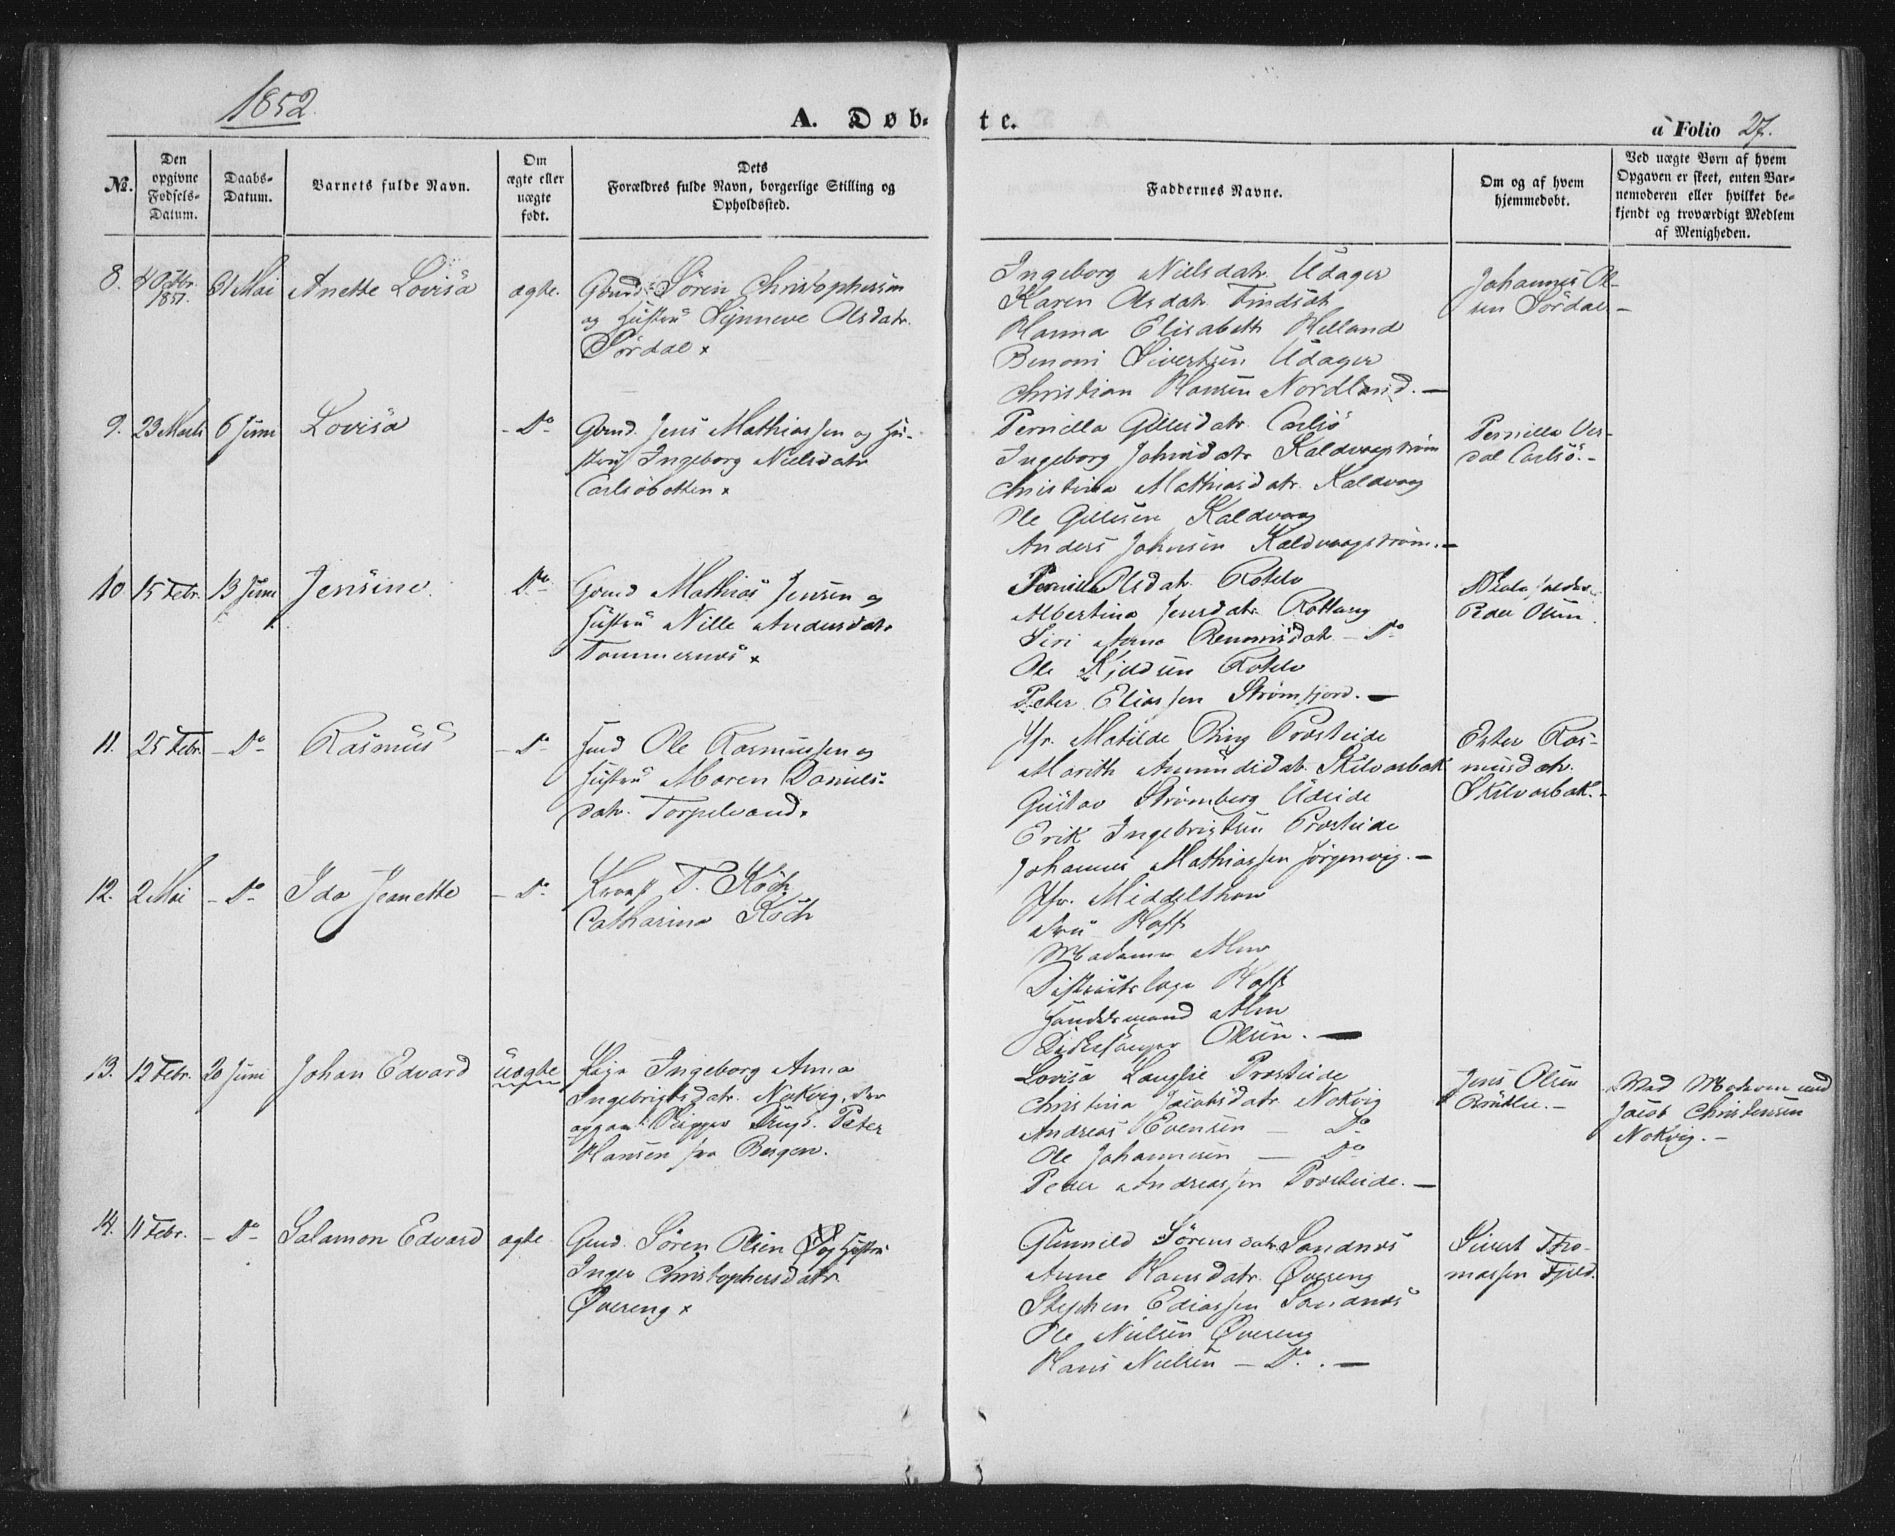 1852.
A. Døb-
te.
a Folio 27.
№.
Den opgivne Fødsels-Datum.
Daabs-Datum.
Barnets fulde Navn.
Om ægte eller uægte født.
Dets Forældres fulde Navn, borgerlige Stilling og Opholdssted.
Faddernes Navne.
Om og af hvem hjemmedøbt.
Ved uægte Børn af hvem Opgaven er skeet, enten Barnemoderen eller hvilket bekjendt og troværdigt Medlem af Menigheden.
8. 4 Octbr. 1851. 31 Mai Anette Lovisa ægte. Gbmd. Søren Christophersen
og Hustru Synneve Olsdatr.
Sørdal x
Ingeborg Nielsdatr. Udager
Karen Olsdatr.
Hanna Elisabeth Helland
Benoni Sivertsen Udager
Christian Hansen Nordland. —
Johannes Ol-
sen Sørdal —
9. 23 Marts 6 Juni Lovisa - Do Gbmd. Jens Mathiassen og Hu-
stru Ingeborg Nielsdatr
Carlsöbotten x
Pernilla Gillisdatr. Carlsö
Ingeborg Johnsdatr Kaldvaagstrøm
Christina Mathiasdatr. Kaldvaag
Ole Gillesen Kaldvaag
Anders Johnsen Kaldvaagstrøm. —
Pernille
Carlsö. -
10. 15 Febr. 13 Juni Jensine. Do Gbmd Mathias Jensen og
Hustru Nille Andersdatr
Tømmernæs x
Pernilla Olsdatr. Rotelv
Albertina Jensdatr. Rottang
Siri Anna Benonisdatr — Do
Ole Kjeldsen Rotelv
Peter Eliassen Strømfjord. —
Peder Olsen.
11. 25 Febr. - Do - Rasmus - Do Ole Rasmussen og
Hustru Maren Daniels-
datr. Torpelvand.
Jfr. Matilde Ring Presteide
Marith Amundsdatr. Skilvasbak
Gustav Strømberg Udeide
Erik Ingebrigtsen Presteide
Johannes Mathiassen Jørgenvig. —
Ester Ras-
musdatr.
Skilvasbak. -
12. 2 Mai - Do - Ida Jeanette - Do T. Koch,
Catharina Koch
Jfr. Middelthon
Fru Hoff
Madame Alm
Districtslæge Hoff
Handelsmand Alm
Olsen. —
13. 12 Febr. 20 Juni Johan Edvard uægte Pige Ingeborg Anna
Ingebrigtsdatr. Nokvig, den
Peter
Hansen fra Bergen.
Lovisa Presteide
Christina Jacobsdatr Nokvig
Andreas Evensen — Do
Ole Johannesen — Do
Peter Andreassen Presteide. —
Jens Olsen
Ved Moderen und
Jacob Christensen
Nokvig. —
14. 11 Febr. - Do - Salamon Edvard ægte Gmd. Søren Olsen og Hustru
Inger Christophersdatr.
Øvereng x
Gunnild Sørensdatr. Sandnæs
Anne Hansdatr. Øvereng
Stephen Ediassen Sandnæs
Ole Nielsen Øvereng
Hans Nielsen — Do. —
Sivert Tho-
massen Fjeld.